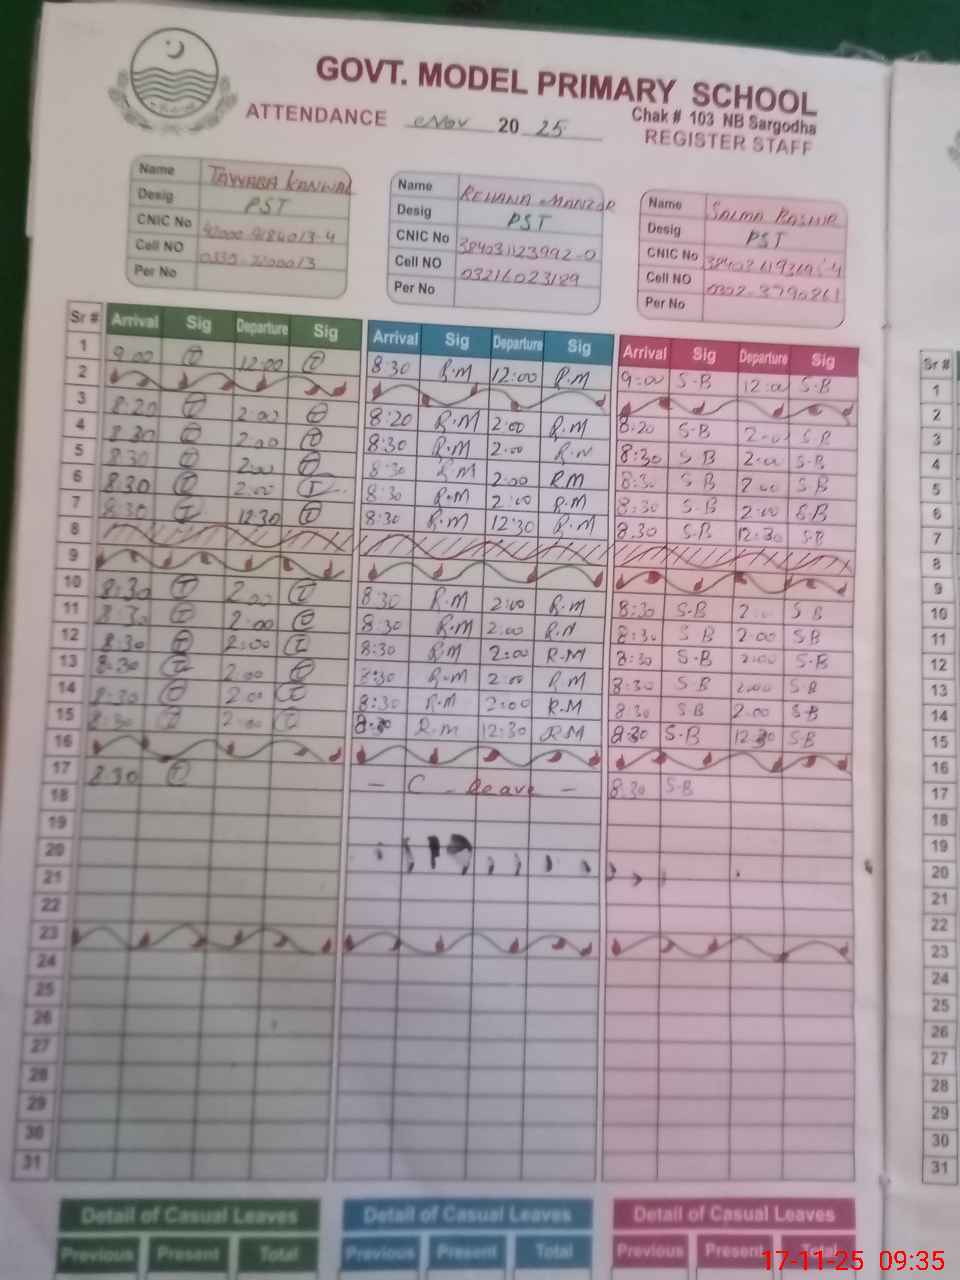 GOVT. MODEL PRIMARY SCHOOL
Chak # 103 NB Sargodha
ATTENDANCE Nov 2025 REGISTER STAFF
Name TAYYABA KANWAL
Desig PST
CNIC No
Cell NO
Per No
Name REHANA MANZOR
Desig PST
CNIC No 384031123992-0
Cell NO 03216023189
Per No
Name SALMA BASHIR
Desig PST
CNIC No
Cell NO
Per No
Sr # Arrival Sig Departure Sig Arrival Sig Departure Sig Arrival Sig Departure Sig Sr #
1 9:00 T 12:00 T 8:30 R.M 12:00 R.M 9:00 S-B 12:00 S-B 1
2 2
3 8:20 T 2:00 T 8:20 R.M 2:00 R.M 8:20 S-B 2:00 S-B 3
4 8:30 T 2:00 T 8:30 R.M 2:00 R.M 8:30 S B 2:00 S-B 4
5 8:30 T 2:00 T 8:30 R.M 2:00 RM 8:30 S B 2:00 S B 5
6 8:30 T 2:00 T 8:30 R.M 2:00 R.M 8:30 S-B 2:00 S.B 6
7 8:30 T 12:30 T 8:30 R.M 12:30 R.M 8.30 S-B 12:30 S-B 7
8 8
9 9
10 8:30 T 2:00 T 8:30 R.M 2:00 R.M 8:30 S-B 2: S B 10
11 8:30 T 2:00 T 8:30 R.M 2:00 R.M 8:30 S B 2:00 S.B 11
12 8:30 T 2:00 T 8:30 R.M 2:00 R.M 8:30 S-B 2:00 S-B 12
13 8:30 T 2:00 T 8:30 R.M 2:00 R.M 8:30 S-B 2:00 S-B 13
14 8:30 T 2:00 T 8:30 R.M 2:00 R.M 8:30 S B 2:00 S-B 14
15 8:30 T 2:00 T 8:30 R.M 12:30 R.M 8:30 S-B 12:30 S-B 15
16 16
17 8:30 T — C leave — 8:30 S-B 17
18 18
19 19
20 20
21 21
22 22
23 23
24 24
25 25
26 26
27 27
28 28
29 29
30 30
31 31
Detail of Casual Leaves Detail of Casual Leaves Detail of Casual Leaves
Previous Present Total Previous Present Total Previous Present Total
17-11-25 09:35